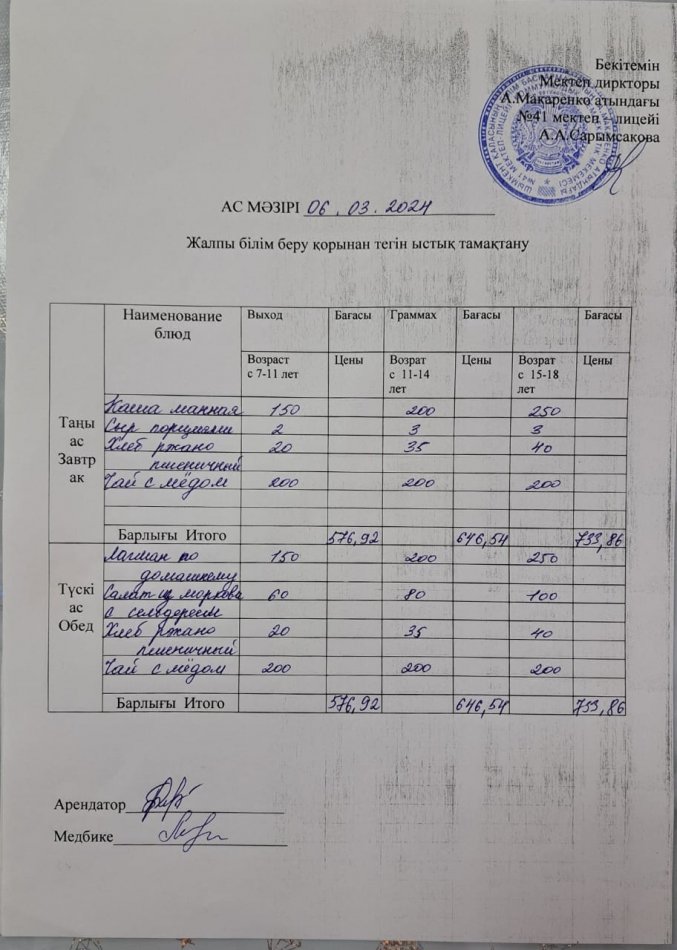 Бекітемін
Мектеп дирkторы
А.Макаренко атындағы
№41 мектеп - лицейі
А.А.Сарымсакова
АС МӘЗІРІ 06.03.2024
Жалпы білім беру қорынан тегін ыстық тамақтану
Наименование блюд Выход Бағасы Граммах Бағасы Бағасы
Возраст с 7-11 лет Цены Возрат с 11-14 лет Цены Возрат с 15-18 лет Цены
Таңы ас Завтр ак
Каша манная 150 200 250
Сыр порциями 2 3 3
Хлеб ржано 20 35 40
пшеничный
Чай с мёдом 200 200 200
Барлығы Итого 576,92 646,54 733,86
Түскі ас Обед
Лагман по 150 200 250
домашкему
Салат из моркова 60 80 100
с сельдереем
Хлеб ржано 20 35 40
пшеничный
Чай с мёдом 200 200 200
Барлығы Итого 576,92 646,54 733,86
Арендатор
Медбике